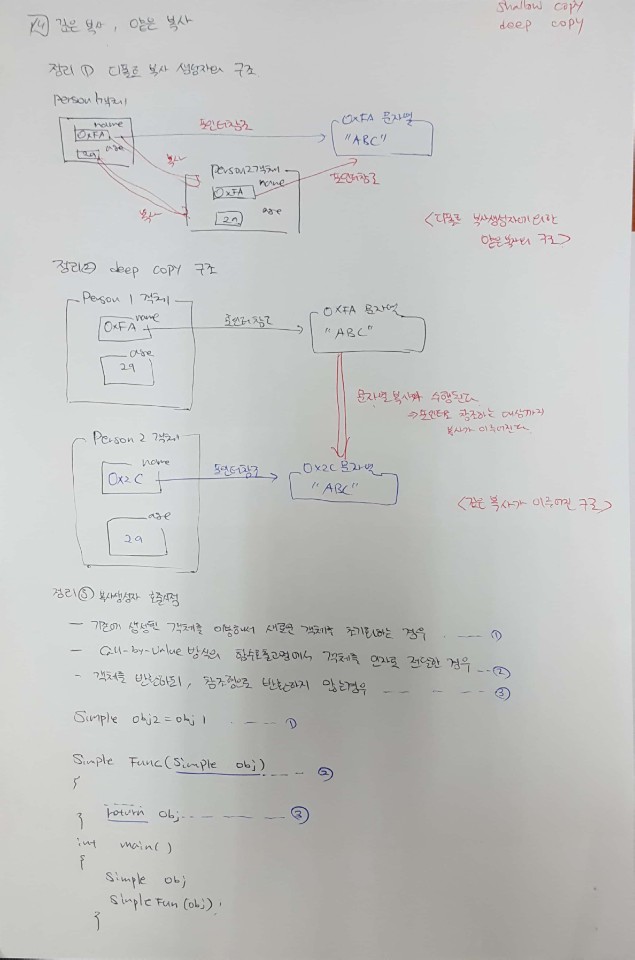 shallow copy
deep copy
깊은 복사, 얕은 복사
정리 ① 디폴트 복사 생성자의 구조
person1객체
name
0xFA
age
29
포인터참조
0xFA 문자열
"ABC"
복사
person2객체
name
0xFA
포인터참조
age
29
복사
<디폴트 복사생성자에 의한
얕은복사의 구조>
정리② deep copy 구조
Person 1 객체
name
0xFA
포인터참조
0xFA 문자열
"ABC"
age
29
문자열복사가 수행된다
⇒포인터로 참조하는 대상까지
복사가 이루어진다
Person 2 객체
name
0x2C
포인터참조
0x2C 문자열
"ABC"
<깊은 복사가 이루어진 구조>
age
29
정리③ 복사생성자 호출시점
- 기존에 생성된 객체를 이용해서 새로운 객체를 초기화하는 경우 ①
- Call-by-value 방식의 함수호출과정에서 객체를 인자로 전달한 경우 ②
- 객체를 반환하되, 참조형으로 반환하지 않는경우 ③
Simple obj2 = obj1 ①
Simple Func(Simple obj) ②
{
return obj ③
}
int main()
{
Simple obj
SimpleFun(obj);
}